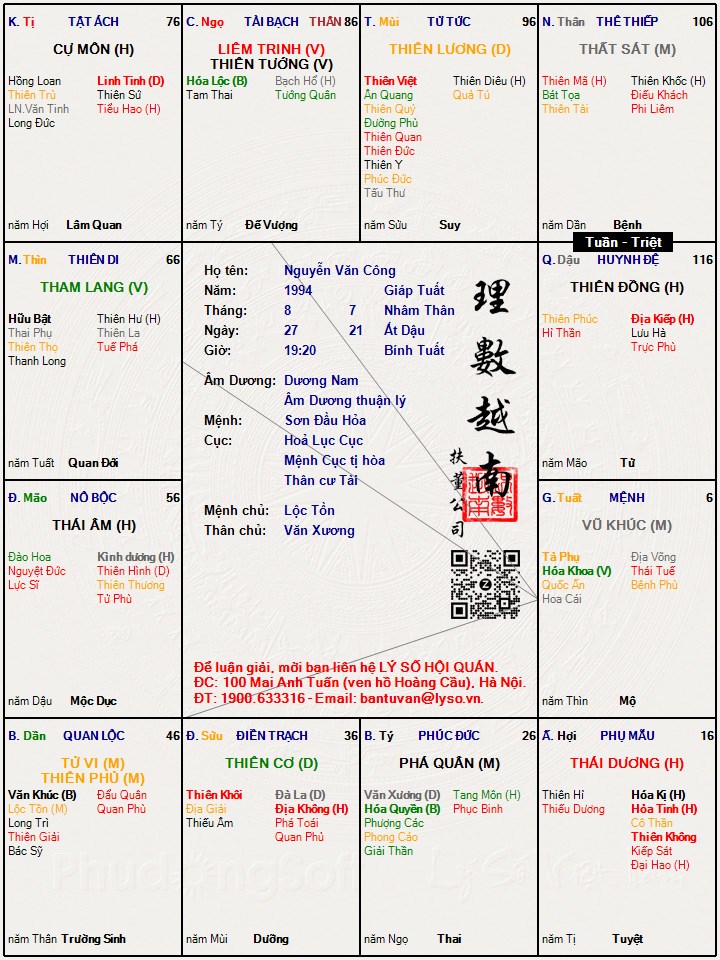 K. Tị TẬT ÁCH 76
CỰ MÔN (H)
Hồng Loan Linh Tinh (D)
Thiên Trù Thiên Sứ
LN.Văn Tinh Tiểu Hao (H)
Long Đức
năm Hợi Lâm Quan
C. Ngọ TÀI BẠCH THÂN 86
LIÊM TRINH (V)
THIÊN TƯỚNG (V)
Hóa Lộc (B) Bạch Hổ (H)
Tam Thai Tướng Quân
năm Tý Đế Vượng
T. Mùi TỬ TỨC 96
THIÊN LƯƠNG (D)
Thiên Việt Thiên Diêu (H)
Ân Quang Quả Tú
Thiên Quý
Đường Phù
Thiên Quan
Thiên Đức
Thiên Y
Phúc Đức
Tấu Thư
năm Sửu Suy
N. Thân THÊ THIẾP 106
THẤT SÁT (M)
Thiên Mã (H) Thiên Khốc (H)
Bát Tọa Điếu Khách
Thiên Tài Phi Liêm
năm Dần Bệnh
Tuần - Triệt
M. Thìn THIÊN DI 66
THAM LANG (V)
Hữu Bật Thiên Hư (H)
Thai Phụ Thiên La
Thiên Thọ Tuế Phá
Thanh Long
năm Tuất Quan Đới
Họ tên: Nguyễn Văn Công
Năm: 1994 Giáp Tuất
Tháng: 8 7 Nhâm Thân
Ngày: 27 21 Ất Dậu
Giờ: 19:20 Bính Tuất
Âm Dương: Dương Nam
Âm Dương thuận lý
Mệnh: Sơn Đầu Hỏa
Cục: Hoả Lục Cục
Mệnh Cục tị hòa
Thân cư Tài
Mệnh chủ: Lộc Tồn
Thân chủ: Văn Xương
理數越南
扶董公司
Để luận giải, mời bạn liên hệ LÝ SỐ HỘI QUÁN.
ĐC: 100 Mai Anh Tuấn (ven hồ Hoàng Cầu), Hà Nội.
ĐT: 1900.633316 - Email: bantuvan@lyso.vn.
Q. Dậu HUYNH ĐỆ 116
THIÊN ĐỒNG (H)
Thiên Phúc Địa Kiếp (H)
Hỉ Thần Lưu Hà
Trực Phù
năm Mão Tử
Đ. Mão NÔ BỘC 56
THÁI ÂM (H)
Đào Hoa Kình dương (H)
Nguyệt Đức Thiên Hình (D)
Lực Sĩ Thiên Thương
Tử Phù
năm Dậu Mộc Dục
G. Tuất MỆNH 6
VŨ KHÚC (M)
Tả Phụ Địa Võng
Hóa Khoa (V) Thái Tuế
Quốc Ấn Bệnh Phù
Hoa Cái
năm Thìn Mộ
B. Dần QUAN LỘC 46
TỬ VI (M)
THIÊN PHỦ (M)
Văn Khúc (B) Đẩu Quân
Lộc Tồn (M) Quan Phù
Long Trì
Thiên Giải
Bác Sỹ
năm Thân Trường Sinh
Đ. Sửu ĐIỀN TRẠCH 36
THIÊN CƠ (D)
Thiên Khôi Đà La (D)
Địa Giải Địa Không (H)
Thiếu Âm Phá Toái
Quan Phủ
năm Mùi Dưỡng
B. Tý PHÚC ĐỨC 26
PHÁ QUÂN (M)
Văn Xương (D) Tang Môn (H)
Hóa Quyền (B) Phục Binh
Phượng Các
Phong Cáo
Giải Thần
năm Ngọ Thai
Ấ. Hợi PHỤ MẪU 16
THÁI DƯƠNG (H)
Thiên Hỉ Hóa Kị (H)
Thiếu Dương Hỏa Tinh (H)
Cô Thần
Thiên Không
Kiếp Sát
Đại Hao (H)
năm Tị Tuyệt